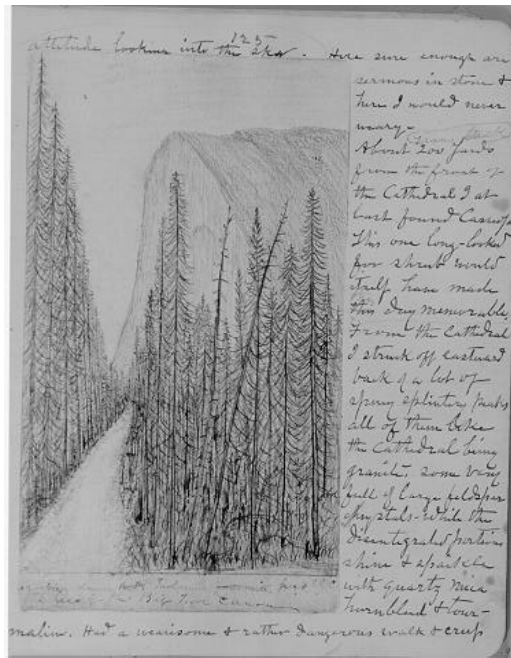 125
attitude looking into the sky. Here sure enough are
sermons in stone &
here I would never
weary.
About 200 yards
from the front of
the Cathedral I at
last found Cassiope
This one long-looked
for shrub would
itself have made
this day memorable.
From the Cathedral
I struck off eastward
back of a lot of
spiny splintery peaks
all of them like
the Cathedral being
granite, some very
full of large feldspar
crystals - while the
disintegrated portions
shine & sparkle
with quartz mica
hornblend & tour-
maline. Had a wearisome & rather dangerous walk & creep